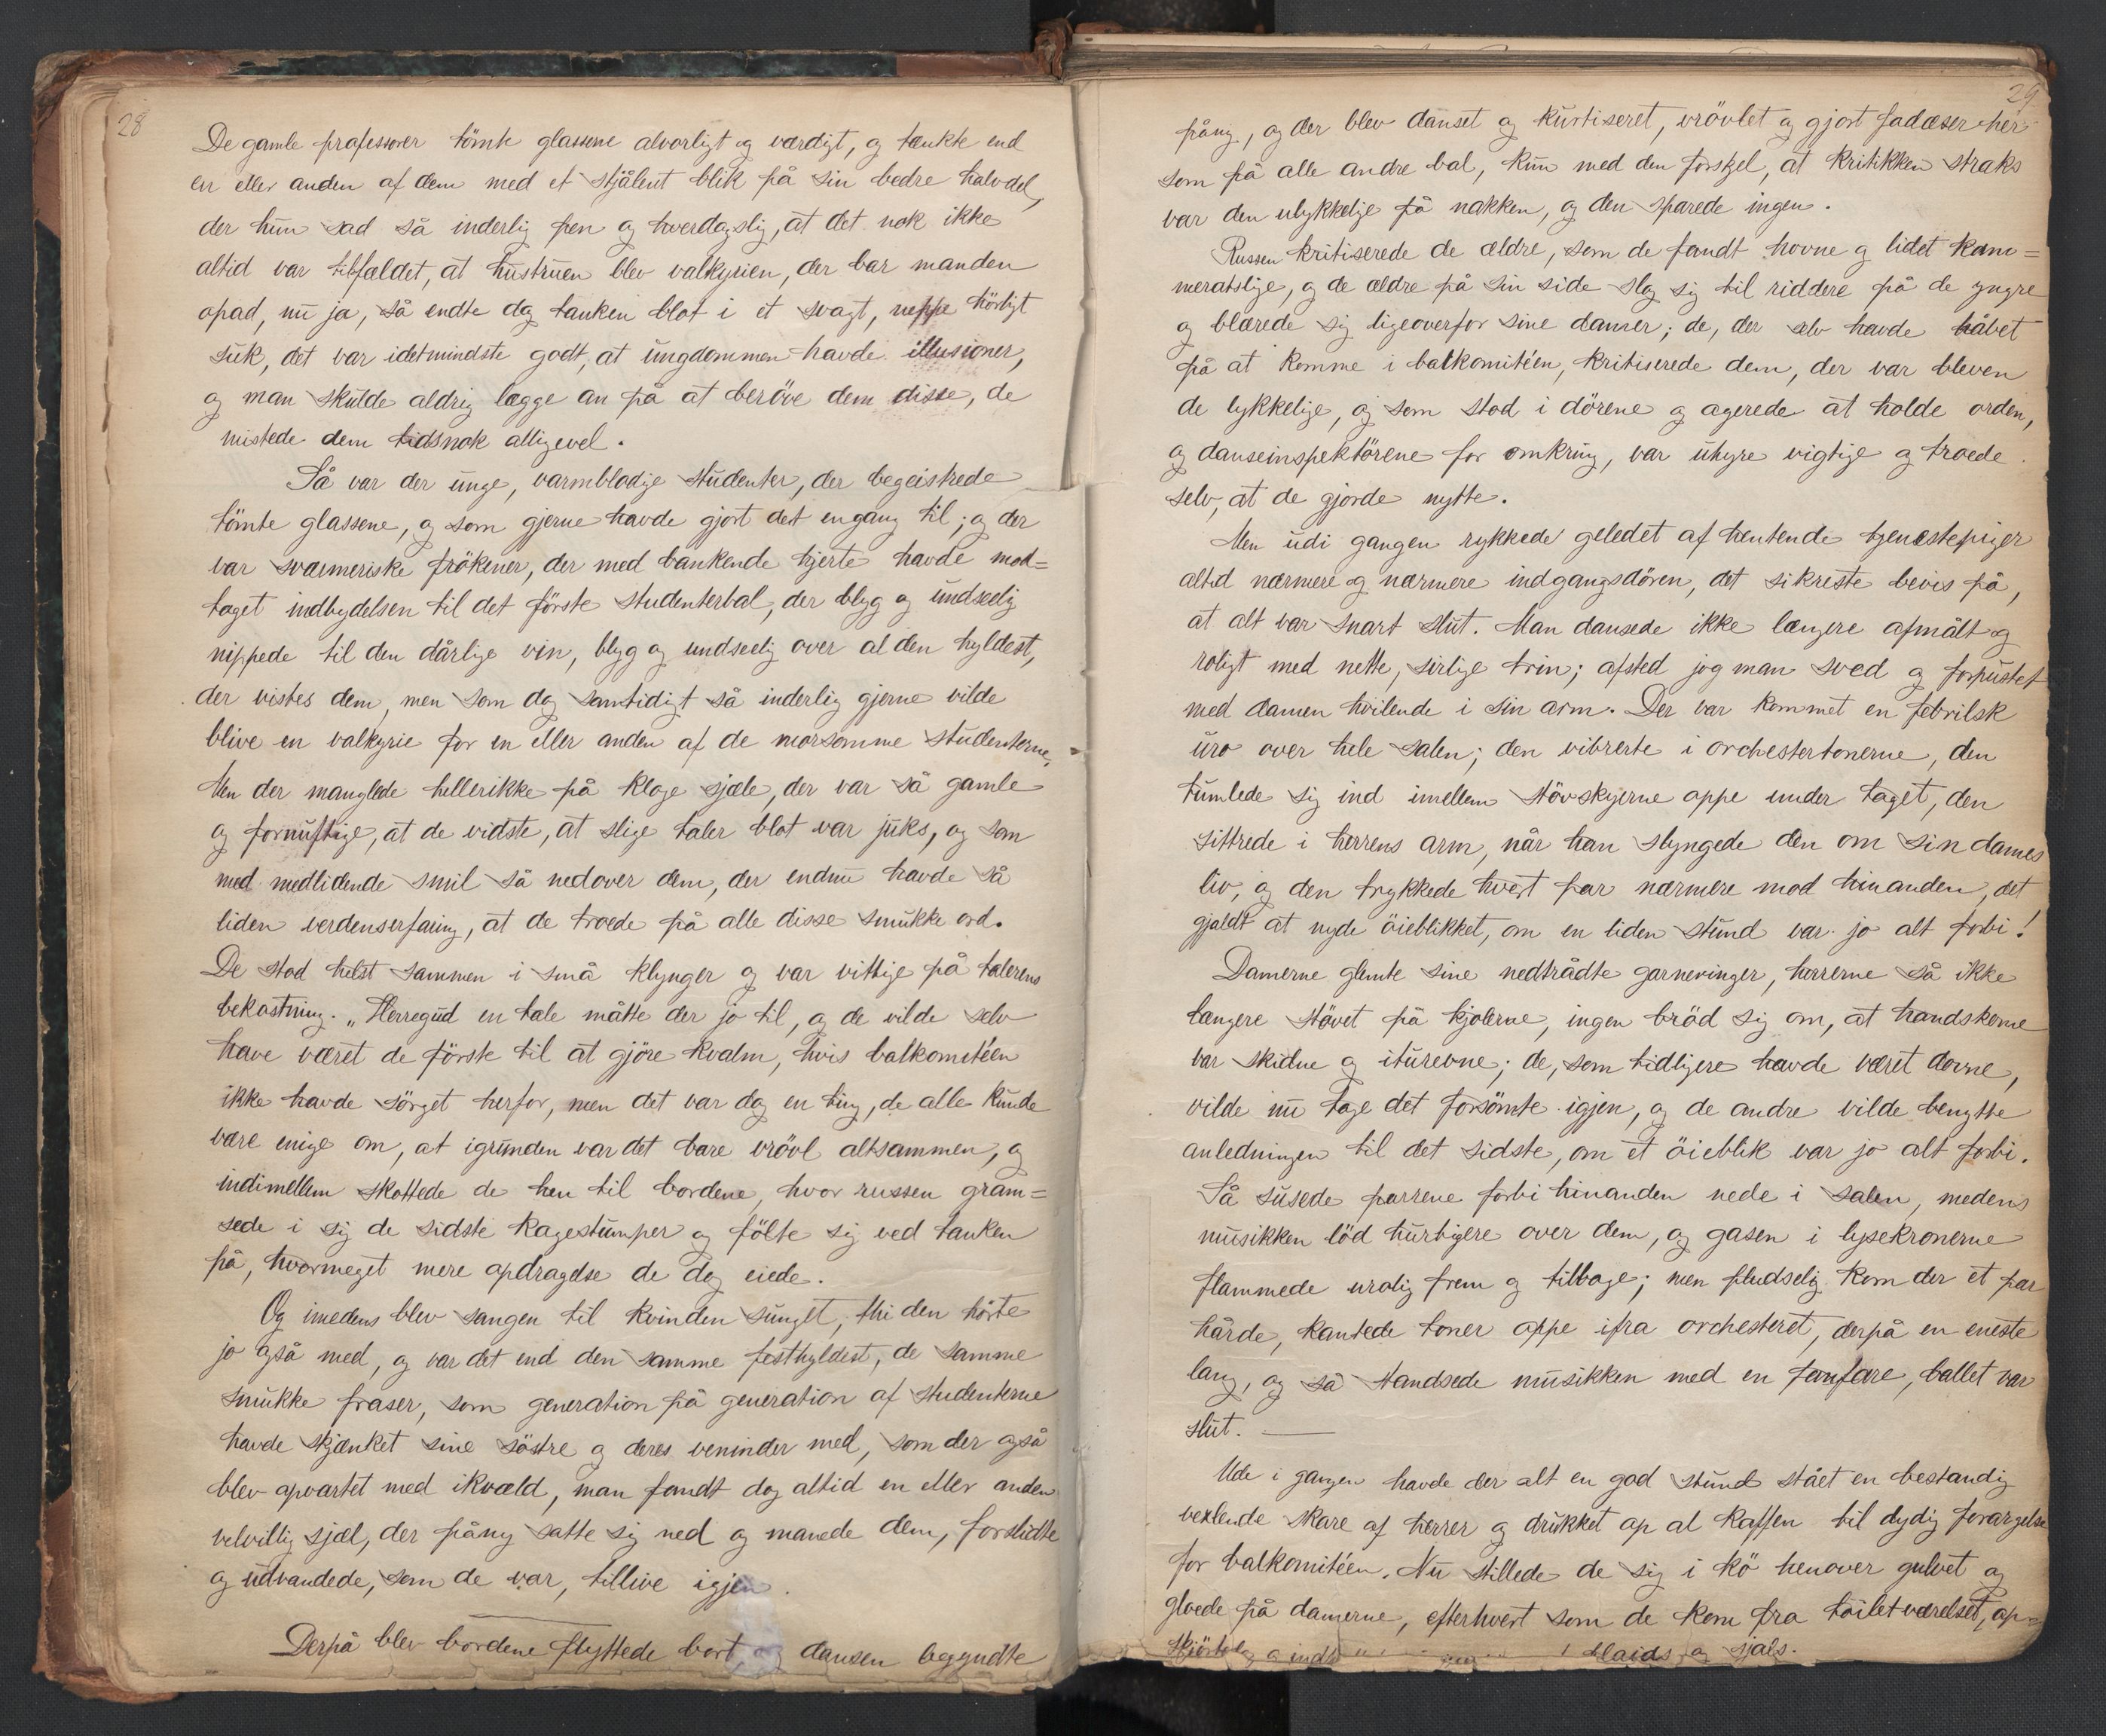 28
De gamle professorer tömte glassene alvorligt og værdigt, og tænkte end
en eller anden af dem med et stjålent blik på sin bedre halvdel,
der hun sad så inderlig pen og hverdagslig, at det nok ikke
altid var tilfældet, at hustruen blev valkyrien, der bar manden
opad, nu ja, så endte dog tanken blot i et svagt, neppe hörligt
suk, det var idetmindste godt, at ungdommen havde illusioner,
og man skulde aldrig lægge an på at beröve dem disse, de
mistede dem tidsnok alligevel.
Så var der unge, varmblodige studenter, der begeistrede
tömte glassene, og som gjerne havde gjort det engang til; og der
var sværmeriske frökener, der med bankende hjerte havde mod=
taget indbydelsen til det förste studenterbal, der blyg og undseelig
nippede til den dårlige vin, blyg og undseelig over al den hyldest,
der vistes dem, men som dog samtidigt så inderlig gjerne vilde
blive en valkyrie for en eller anden af de morsomme studenterne,
Men der manglede hellerikke på kloge sjæle, der var så gamle
og fornuftige, at de vidste, at slige taler blot var juks, og som
med medlidende smil så nedover dem, der endnu havde så
liden verdenserfaring, at de troede på alle disse smukke ord.
De stod helst sammen i små klynger og var vittige på talerens
bekostning. „Herregud en tale måtte der jo til, og de vilde selv
have været de förste til at gjöre kvalm, hvis balkomitéen
ikke havde sörget herfor, men det var dog en ting, de alle kunde
være enige om, at igrunden var det bare vrövl altsammen, og
indimellem skottede de hen til bordene, hvor russen gram=
sede i sig de sidste kagestumper og fölte sig ved tanken
på, hvormeget mere opdragelse de dog eiede.
Og imedens blev sangen til kvinden sunget, thi den hörte
jo også med, og var det end den samme festhyldest, de samme
smukke fraser, som generation på generation af studenterne
havde skjænket sine söstre og deres veninder med, som der også
blev opvartet med ikvæld, man fandt dog altid en eller anden
velvillig sjæl, der påny satte sig ned og manede dem, forslidte
og udvandede, som de var, tillive igjen.
Derpå blev bordene flyttede bort, og dansen begyndte
29
påny, og der blev danset og kurtiseret, vrövlet og gjort fadæser her
som på alle andre bal, kun med den forskjel, at kritikken straks
var den ulykkelige på nakken, og den sparede ingen.
Russen kritiserede de ældre, som de fandt hovne og lidet kam=
meratslige, og de ældre på sin side slog sig til riddere på de yngre
og blærede sig ligeoverfor sine damer; de, der selv havde håbet
på at komme i balkomitéen, kritiserede dem, der var bleven
de lykkelige, og som stod i dörene og agerede at holde orden,
og danseinspektörene for omkring, var uhyre vigtige og troede
selv, at de gjorde nytte.
Men udi gangen rykkede geledet af hentende tjenestepiger
altid nærmere og nærmere indgangsdören, det sikreste bevis på,
at alt var snart slut. Man dansede ikke længere afmålt og
roligt med nette, sirlige trin; afsted jog man sved og forpustet
med damen hvilende i sin arm. Der var kommet en febrilsk
uro over hele salen; den vibrerte i orchestertonerne, den
tumlede sig ind imellem stövskyerne oppe under taget, den
sittrede i herrens arm, når han slyngede den om sin dames
liv, og den trykkede hvert par nærmere mod hinanden, det
gjaldt at nyde öieblikket, om en liden stund var jo alt forbi!
Damerne glemte sine nedtrådte garneringer, herrerne så ikke
længere stövet på kjolerne, ingen bröd sig om, at handskerne
var skidne og iturevne; de, som tidligere havde været dovne,
vilde nu tage det forsömte igjen, og de andre vilde benytte
anledningen til det sidste, om et öieblik var jo alt forbi.
Så susede parrene forbi hinanden nede i salen, medens
musikken löd hurtigere over dem, og gasen i lysekronerne
flammede urolig frem og tilbage; men pludselig kom der et par
hårde, kantede toner oppe ifra orchesteret, derpå en eneste
lang, og så standsede musikken med en fanfare, ballet var
slut. —
Ude i gangen havde der alt en god stund stået en bestandig
vexlende skare af herrer og drukket op al kaffen til dydig forargelse
for balkomitéen. Nu stillede de sig i kö henover gulvet og
gloede på damerne, efterhvert som de kom fra toiletværelset, op=
plaids og sjals.